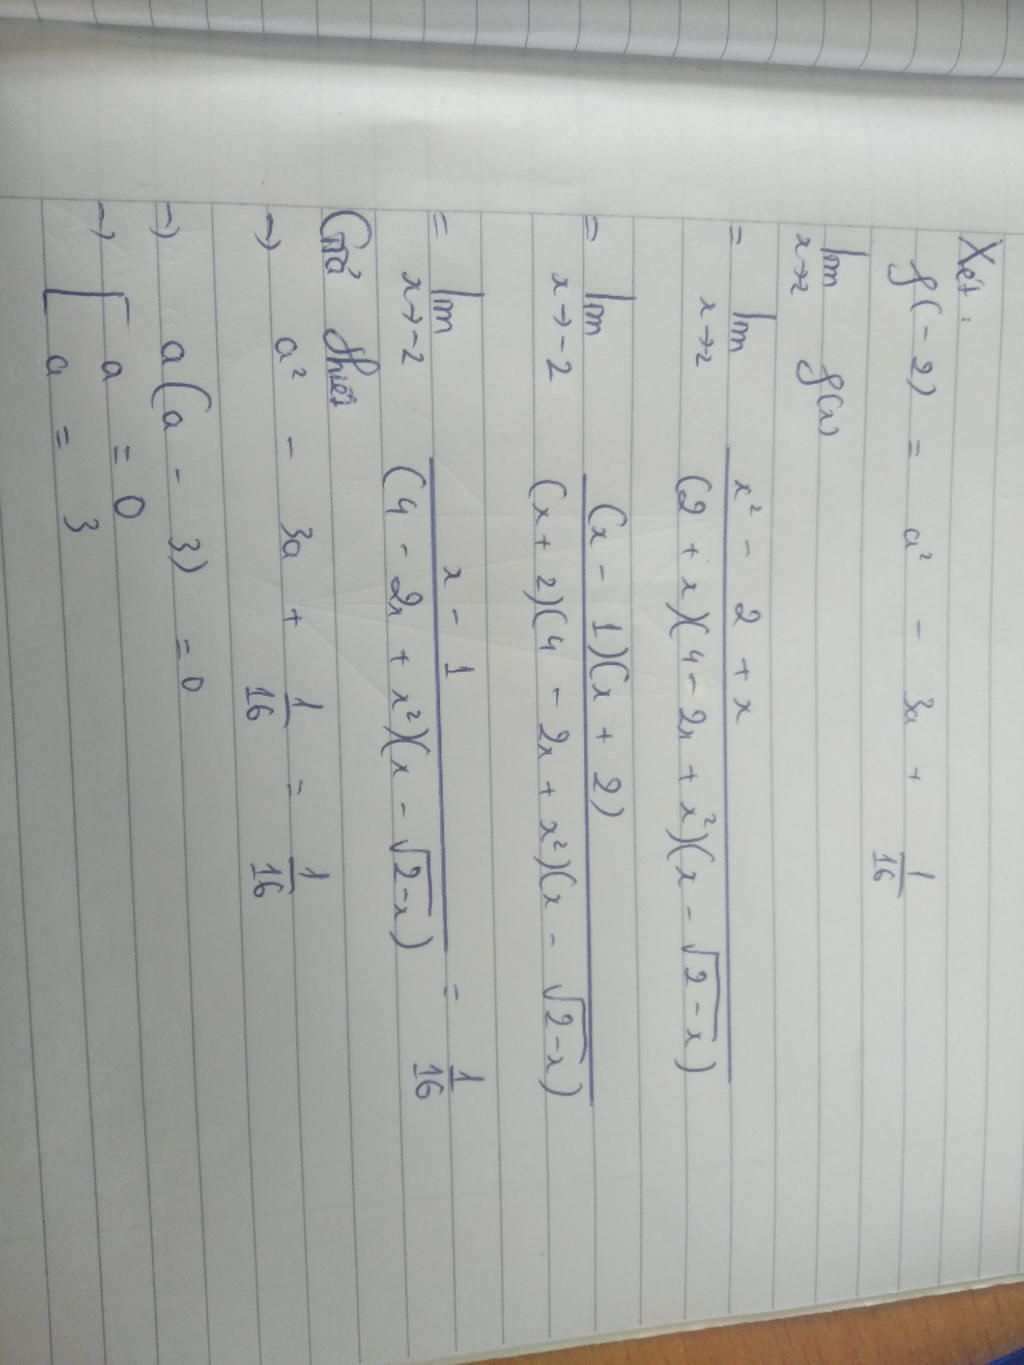 Xét:
f(-2) = a² - 3a + 1/16
lim x→2 f(x)
= lim x→2 (x² - 2 + x)/((2 + x)(4 - 2x + x²)(x - √(2-x)))
= lim x→-2 ((x - 1)(x + 2))/((x + 2)(4 - 2x + x²)(x - √(2-x)))
= lim x→-2 (x - 1)/((4 - 2x + x²)(x - √(2-x))) = 1/16
Giả thiết
→ a² - 3a + 1/16 = 1/16
→ a(a - 3) = 0
→ [ a = 0
a = 3